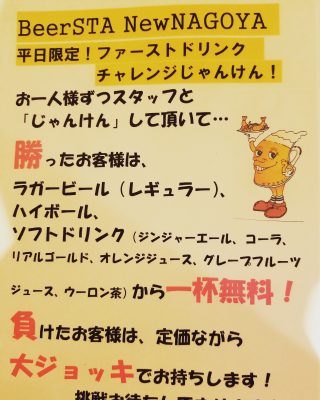 BeerSTA NewNAGOYA
平日限定！ファーストドリンク
チャレンジじゃんけん！
お一人様ずつスタッフと
「じゃんけん」して頂いて…
勝ったお客様は、
ラガービール（レギュラー）、
ハイボール、
ソフトドリンク（ジンジャーエール、コーラ、
リアルゴールド、オレンジジュース、グレープフルーツ
ジュース、ウーロン茶）から一杯無料！
負けたお客様は、定価ながら
大ジョッキでお持ちします！